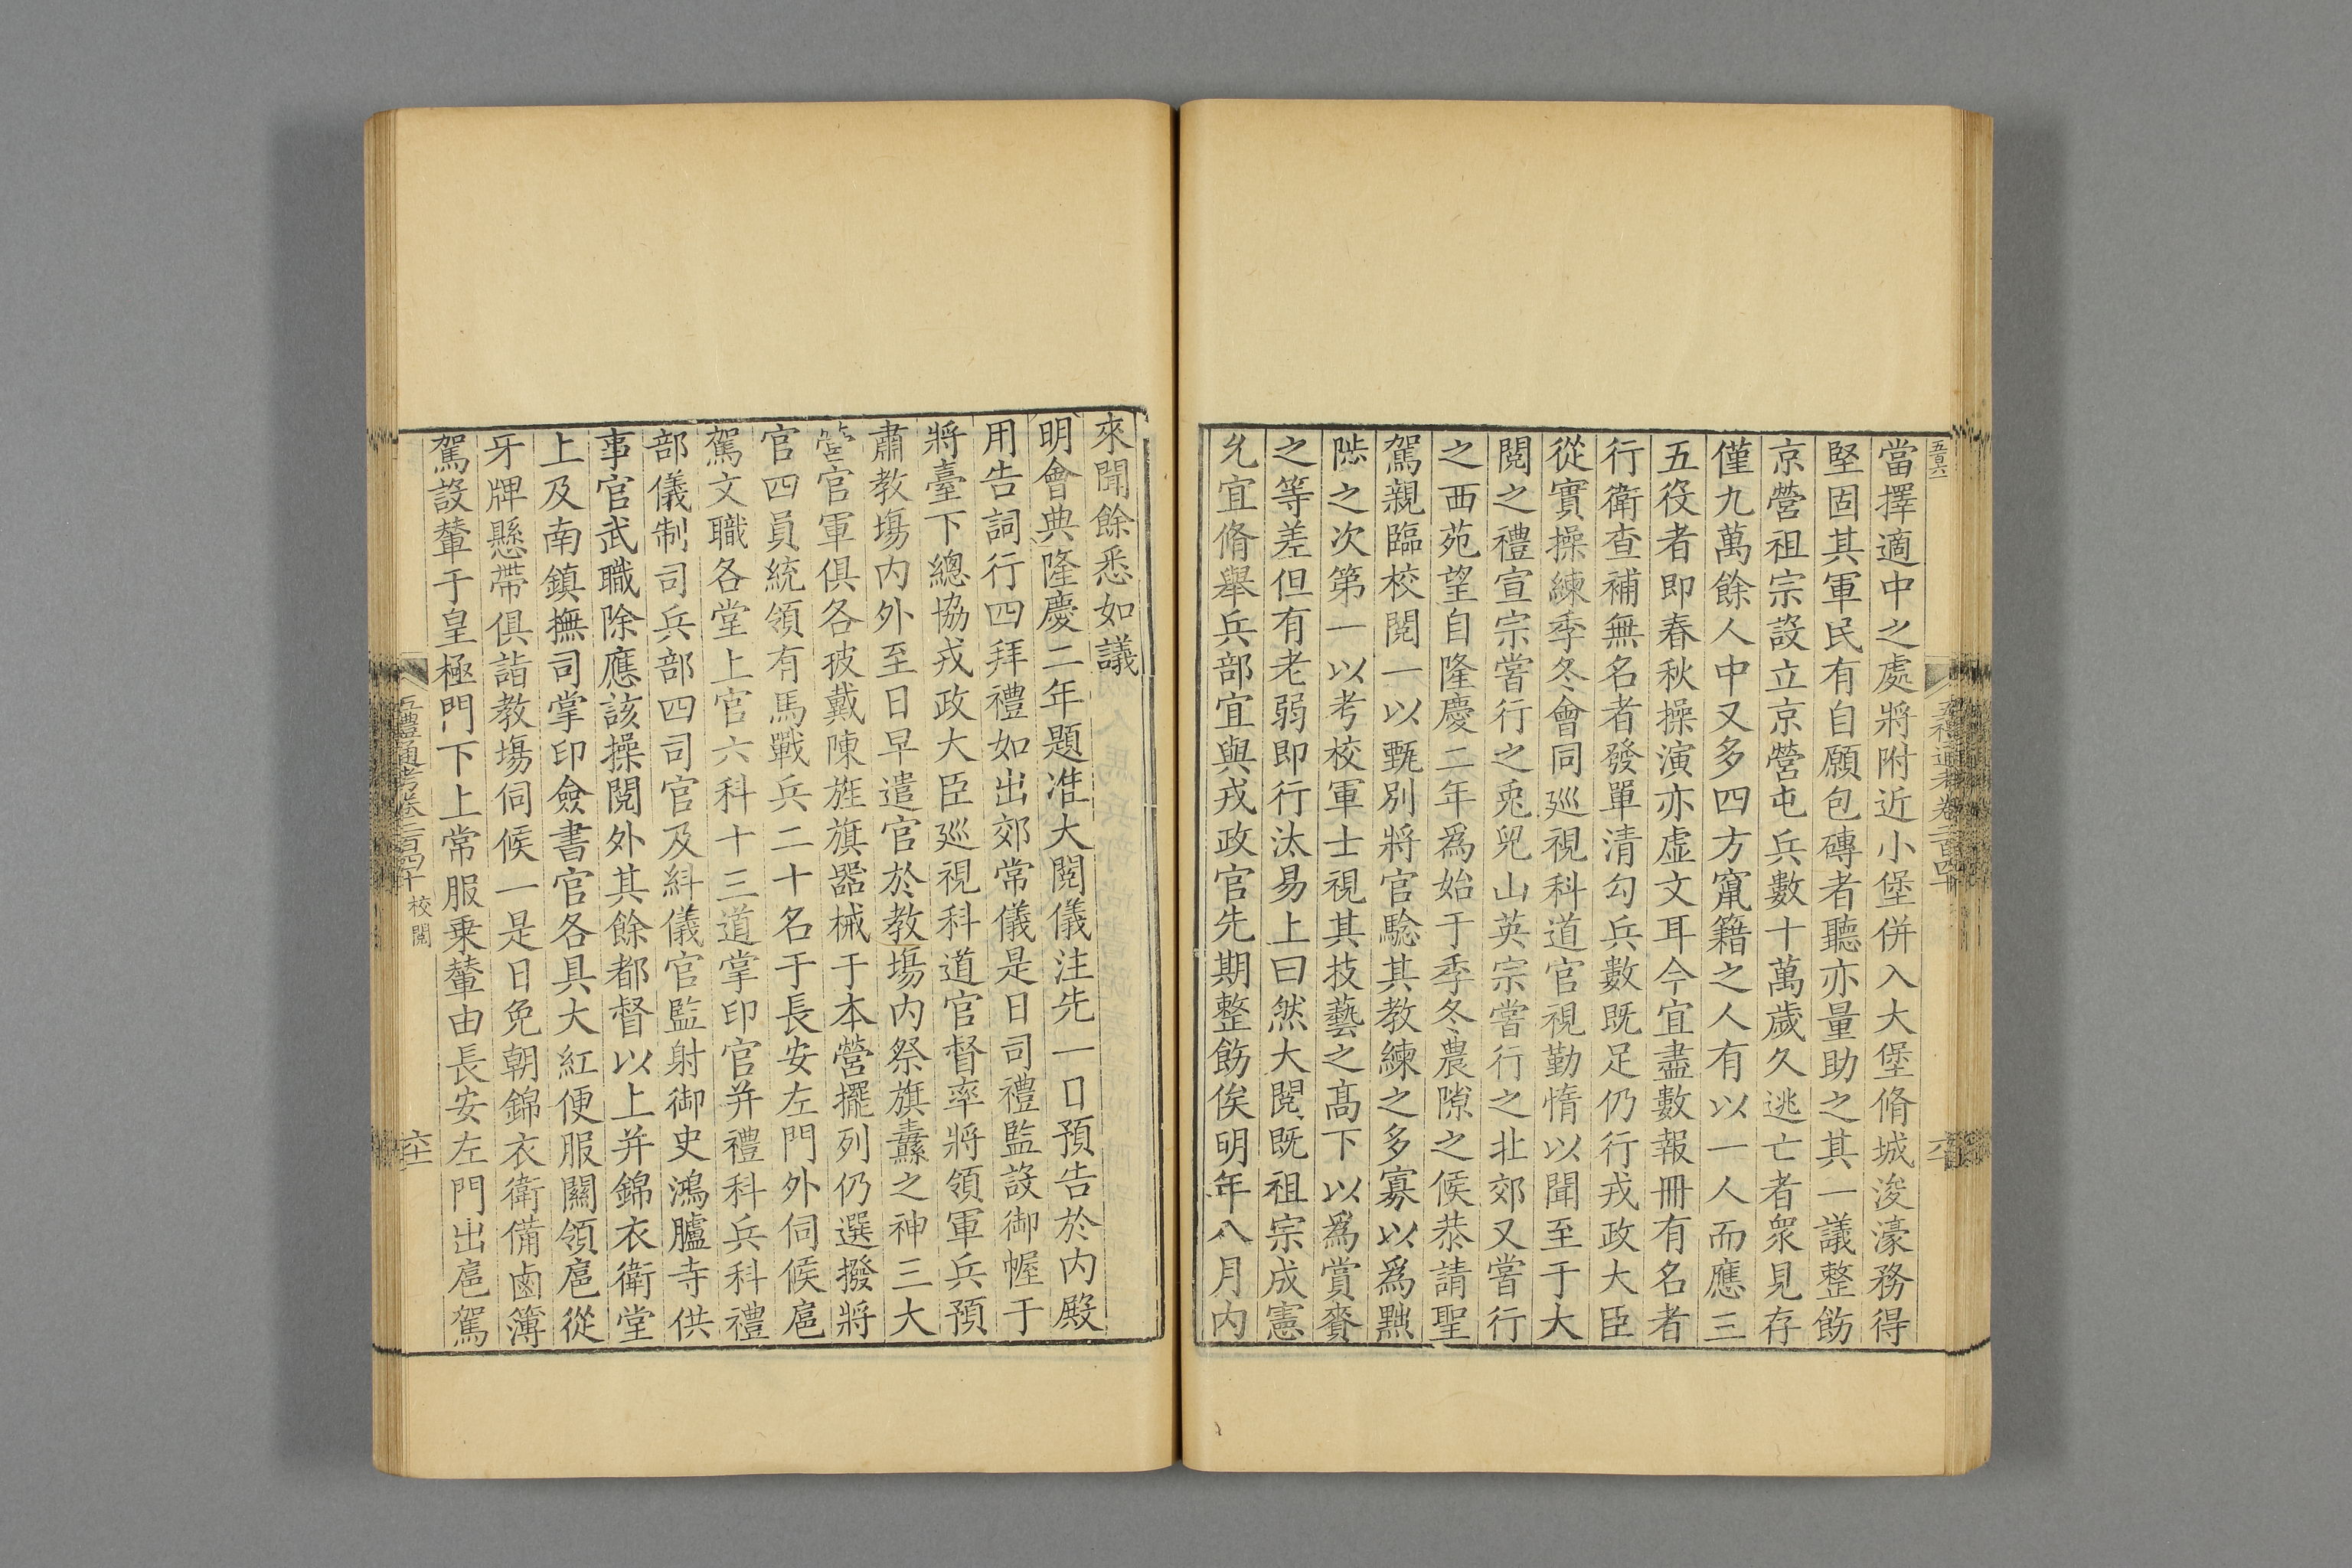 五百六
當擇適中之處將附近小堡併入大堡脩城浚濠務得
堅固其軍民有自願包磚者聽亦量助之其一議整飭
京營祖宗設立京營屯兵數十萬歲久逃亡者衆見存
僅九萬餘人中又多四方竄籍之人有以一人而應三
五役者即春秋操演亦虛文耳今宜盡數報冊有名者
行衛查補無名者發單清勾兵數既足仍行戎政大臣
從實操練季冬會同廵視科道官視勤惰以聞至于大
閱之禮宣宗嘗行之兎兒山英宗嘗行之北郊又嘗行
之西苑望自隆慶二年爲始于季冬農隙之候恭請聖
駕親臨校閱一以甄別將官騐其教練之多寡以爲黜
陟之次第一以考校軍士視其技藝之高下以爲賞賚
之等差但有老弱即行汰易上曰然大閱既祖宗成憲
允宜脩舉兵部宜與戎政官先期整飭俟明年八月內
來聞餘悉如議
明會典隆慶二年題准大閱儀注先一日預告於內殿
用告詞行四拜禮如出郊常儀是日司禮監設御幄于
將臺下總協戎政大臣廵視科道官督率將領軍兵預
肅教塲內外至日早遣官於教塲內祭旗纛之神三大
營官軍俱各披戴陳旌旗器械于本營擺列仍選撥將
官四員統領有馬戰兵二十名于長安左門外伺候扈
駕文職各堂上官六科十三道掌印官并禮科兵科禮
部儀制司兵部四司官及糾儀官監射御史鴻臚寺供
事官武職除應該操閱外其餘都督以上并錦衣衛堂
上及南鎮撫司掌印僉書官各具大紅便服關領扈從
牙牌懸帶俱詣教塲伺候一是日免朝錦衣衛備鹵簿
駕設輦于皇極門下上常服乗輦由長安左門出扈駕
五禮通考卷二百四十 校閱